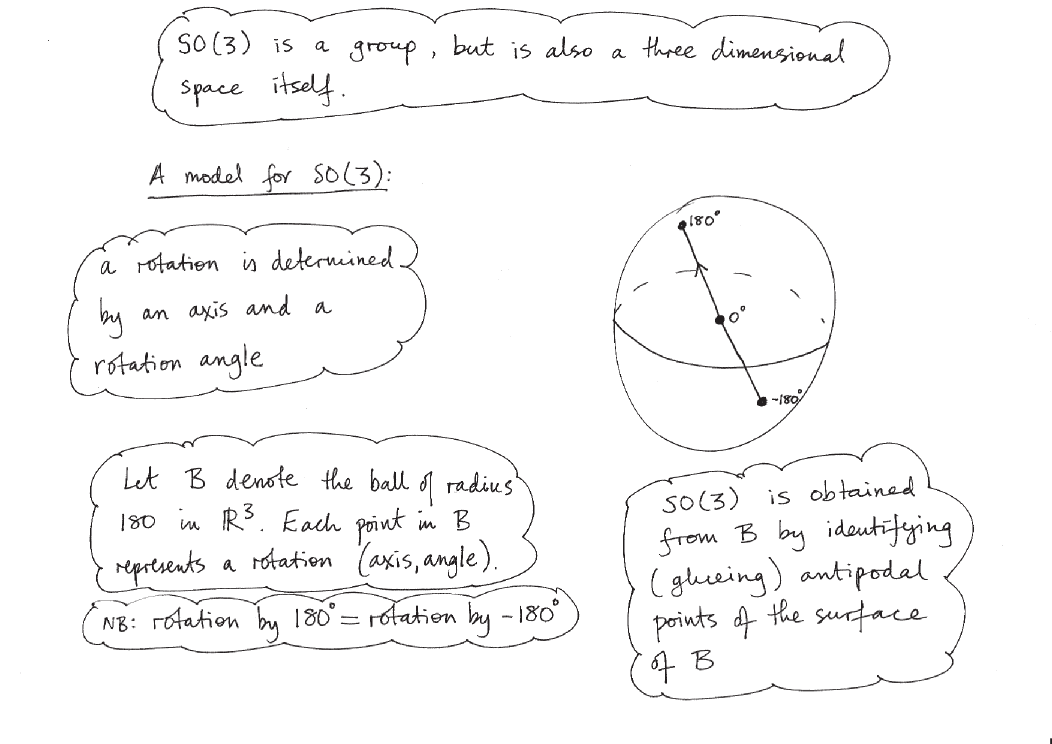 SO(3) is a group, but is also a three dimensional
space itself.
A model for SO(3):
a rotation is determined
by an axis and a
rotation angle
180°
0°
-180°
Let B denote the ball of radius
180 in ℝ³. Each point in B
represents a rotation (axis, angle).
NB: rotation by 180° = rotation by -180°
SO(3) is obtained
from B by identifying
(glueing) antipodal
points of the surface
of B